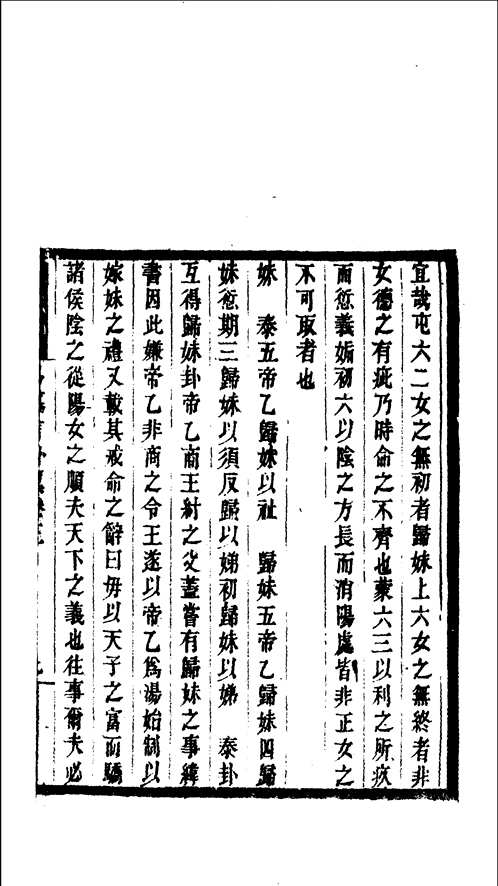 宜哉屯六二女之無初者歸妹上六女之無終者非
女德之有疵乃時命之不齊也蒙六三以利之所疚
而愆義姤初六以陰之方長而消陽處皆非正女之
不可取者也
妹　泰五帝乙歸妹以祉　歸妹五帝乙歸妹四歸
妹愆期三歸妹以須反歸以娣初歸妹以娣　泰卦
互得歸妹卦帝乙商王紂之父蓋嘗有歸妹之事緯
書因此嫌帝乙非商之令王遂以帝乙爲湯始制以
嫁妹之禮又載其戒命之辭曰毋以天子之富而驕
諸侯陰之從陽女之順夫天下之義也往事爾夫必